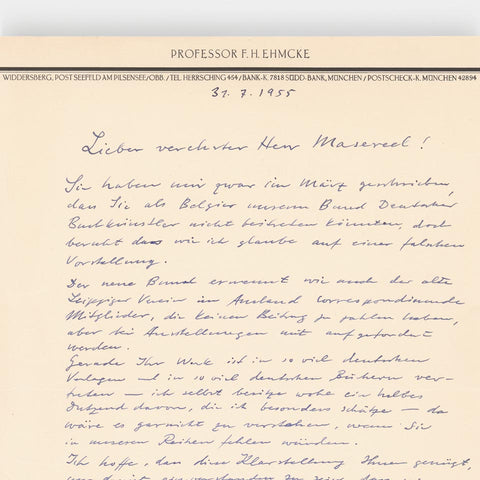 PROFESSOR F.H. EHMCKE
WIDDERSBERG, POST SEEFELD AM PILSENSEE/OBB. / TEL. HERRSCHING 454 / BANK-K. 7818 SÜDD-BANK, MÜNCHEN / POSTSCHECK-K. MÜNCHEN 42894
31. 7. 1955
Lieber verehrter Herr Masereel!
Sie haben mir zwar im März geschrieben,
dass Sie als Belgier unserem Bund Deutscher
Buchkünstler nicht beitreten könnten, doch
beruht dass wie ich glaube auf einer falschen
Vorstellung.
Der neue Bund ernennt wie auch der alte
Leipziger Verein im Ausland correspondierende
Mitglieder, die keinen Beitrag zu zahlen haben,
aber bei Ausstellungen mit aufgefordert
werden.
Gerade Ihr Werk ist in so viel deutschen
Verlagen und in so viel deutschen Büchern ver-
treten — ich selbst besitze wohl ein halbes
Dutzend davon, die ich besonders schätze — da
wäre es garnicht zu verstehen, wenn Sie
in unseren Reihen fehlen würden.
Ich hoffe, dass diese Klarstellung Ihnen genügt,